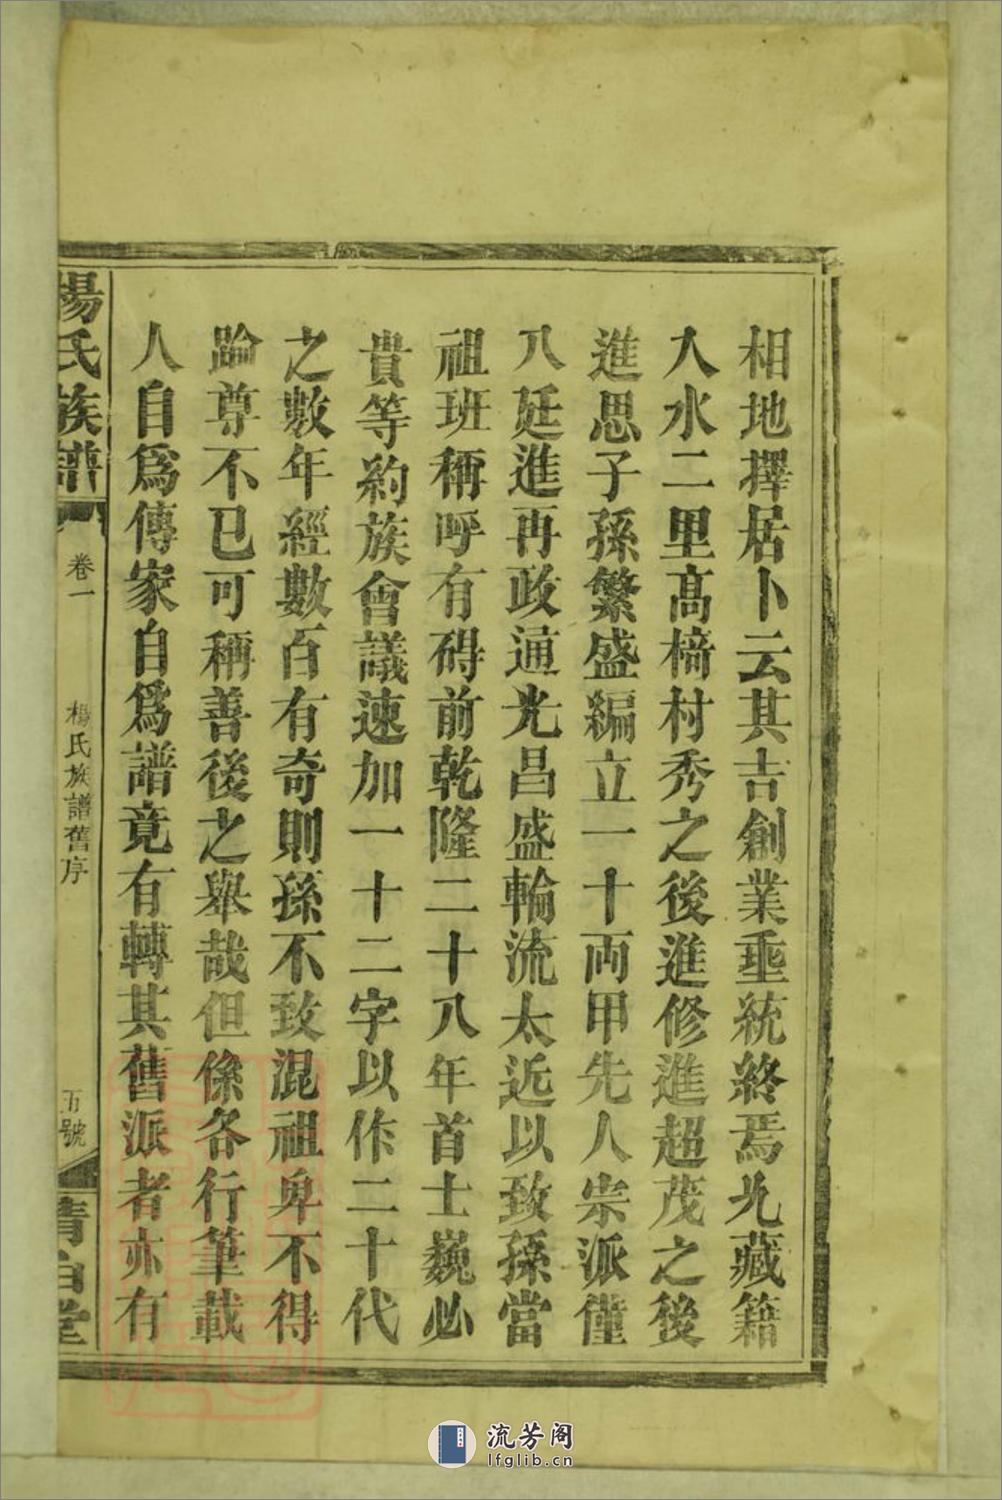 相地擇居卜云其吉創業垂統終焉允藏籍
入水二里高椅村秀之後進修進超茂之後
進思子孫繁盛編立一十両甲先人宗派僅
八廷進再政通光昌盛輪流太近以致孫當
祖班稱呼有碍前乾隆二十八年首士巍必
貴等約族會議速加一十二字以作二十代
之數年經數百有奇則孫不致混祖卑不得
踰尊不已可稱善後之舉哉但係各行筆載
人自爲傳家自爲譜竟有轉其舊派者亦有
楊氏族譜 卷一 楊氏族譜舊序 五號 清白堂
流芳阁
lfglib.cn